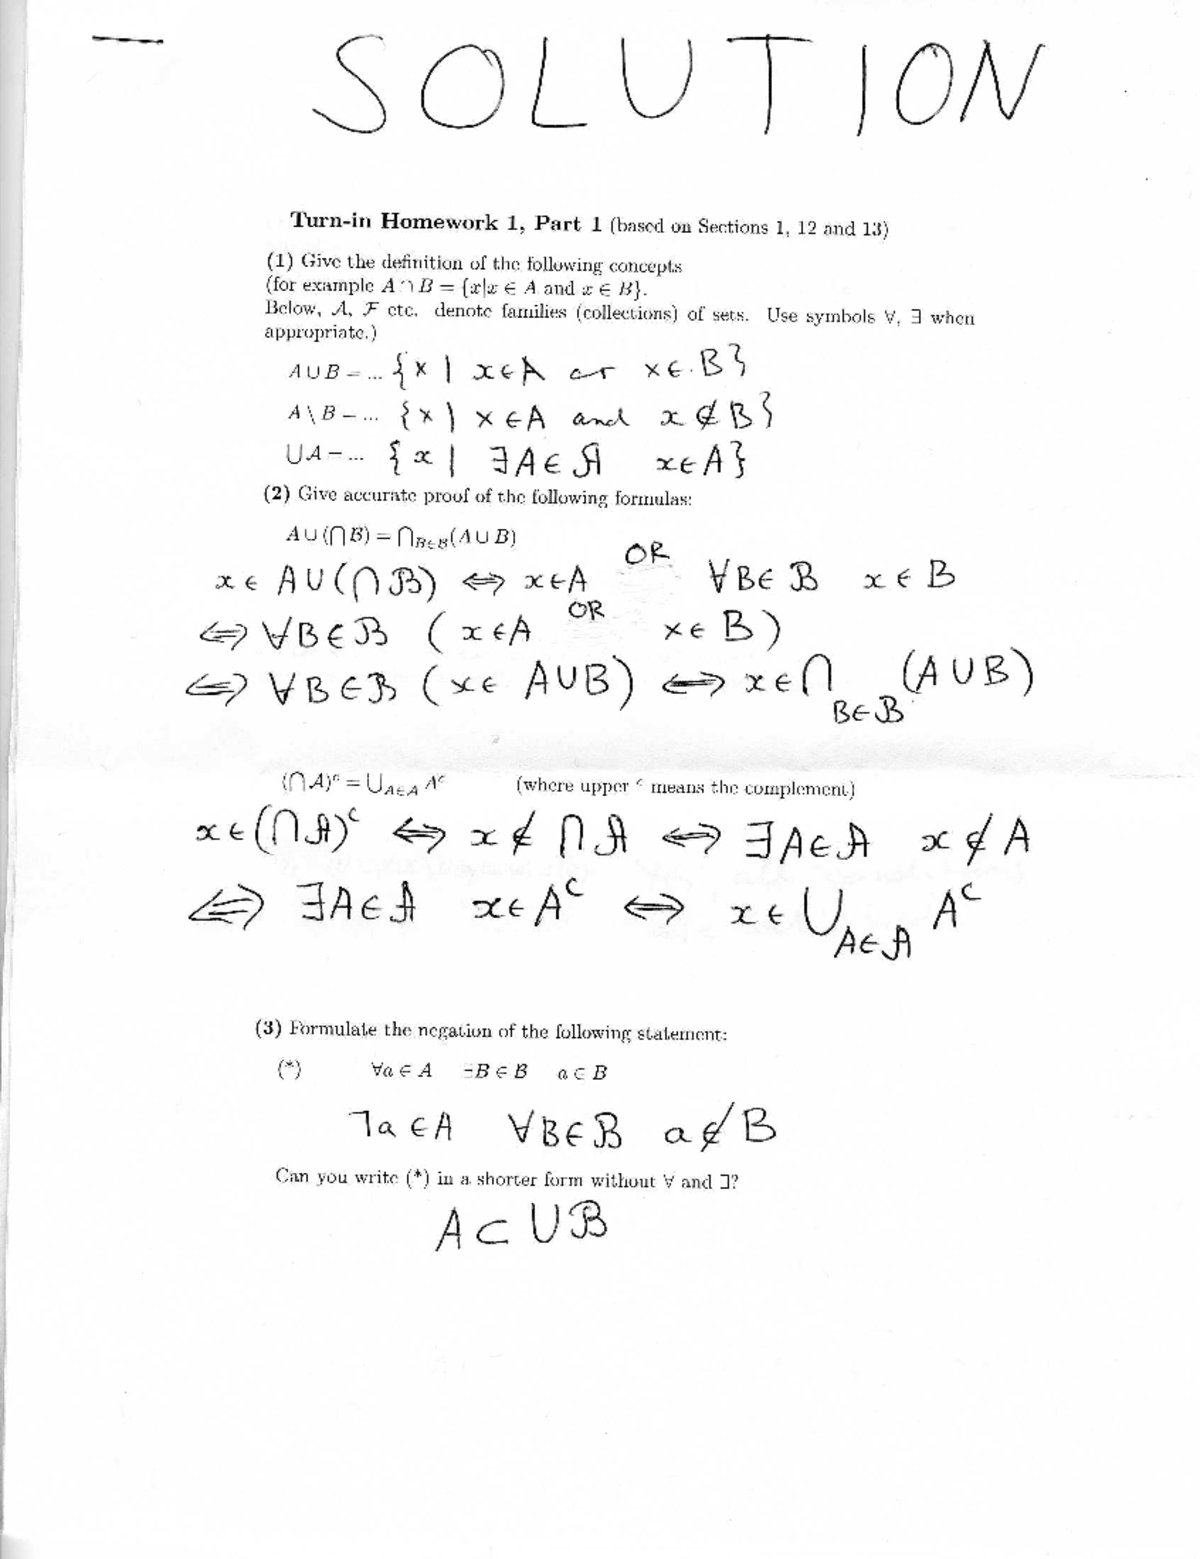 SOLUTION
Turn-in Homework 1, Part 1 (based on Sections 1, 12 and 13)
(1) Give the definition of the following concepts
(for example A ∩ B = {x|x ∈ A and x ∈ B}.
Below, 𝒜, ℱ etc. denote families (collections) of sets. Use symbols ∀, ∃ when
appropriate.)
A ∪ B = ... {x | x ∈ A or x ∈ B}
A \ B = ... {x | x ∈ A and x ∉ B}
⋃𝒜 = ... {x | ∃A ∈ 𝒜 x ∈ A}
(2) Give accurate proof of the following formulas:
A ∪ (⋂ℬ) = ⋂B∈ℬ(A ∪ B)
x ∈ A ∪ (⋂ℬ) ⟺ x ∈ A OR ∀B ∈ ℬ x ∈ B
⟺ ∀B ∈ ℬ (x ∈ A OR x ∈ B)
⟺ ∀B ∈ ℬ (x ∈ A ∪ B) ⟺ x ∈ ⋂B∈ℬ (A ∪ B)
(⋂𝒜)ᶜ = ⋃A∈𝒜 Aᶜ (where upper ᶜ means the complement)
x ∈ (⋂𝒜)ᶜ ⟺ x ∉ ⋂𝒜 ⟺ ∃A ∈ 𝒜 x ∉ A
⟺ ∃A ∈ 𝒜 x ∈ Aᶜ ⟺ x ∈ ⋃A∈𝒜 Aᶜ
(3) Formulate the negation of the following statement:
(*) ∀a ∈ A ∃B ∈ ℬ a ∈ B
∃a ∈ A ∀B ∈ ℬ a ∉ B
Can you write (*) in a shorter form without ∀ and ∃?
A ⊂ ⋃ℬ